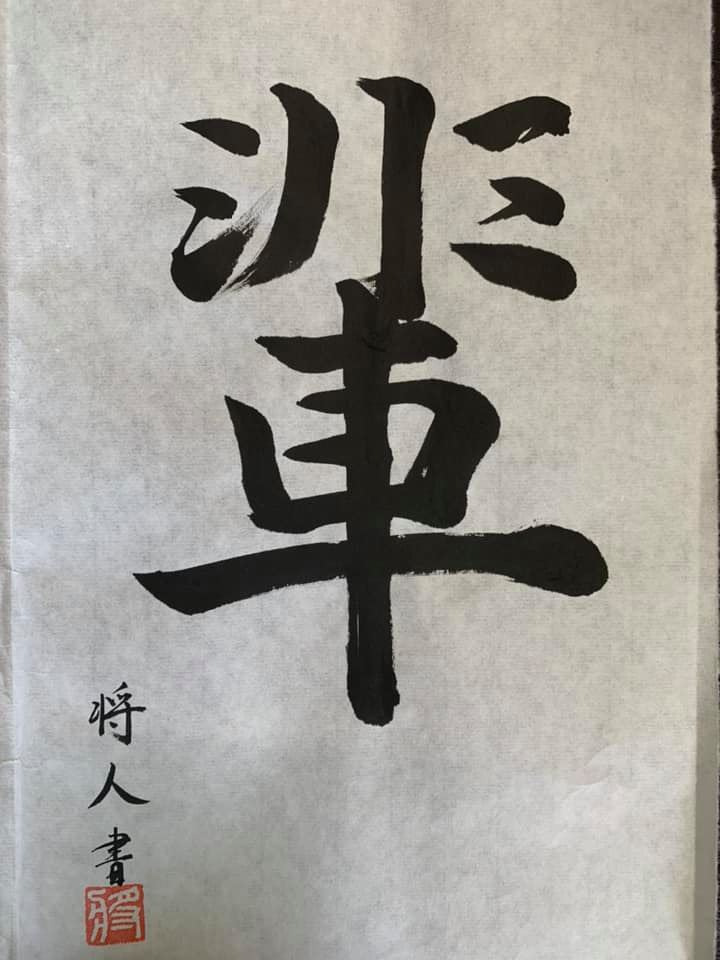 輩
将人書
将